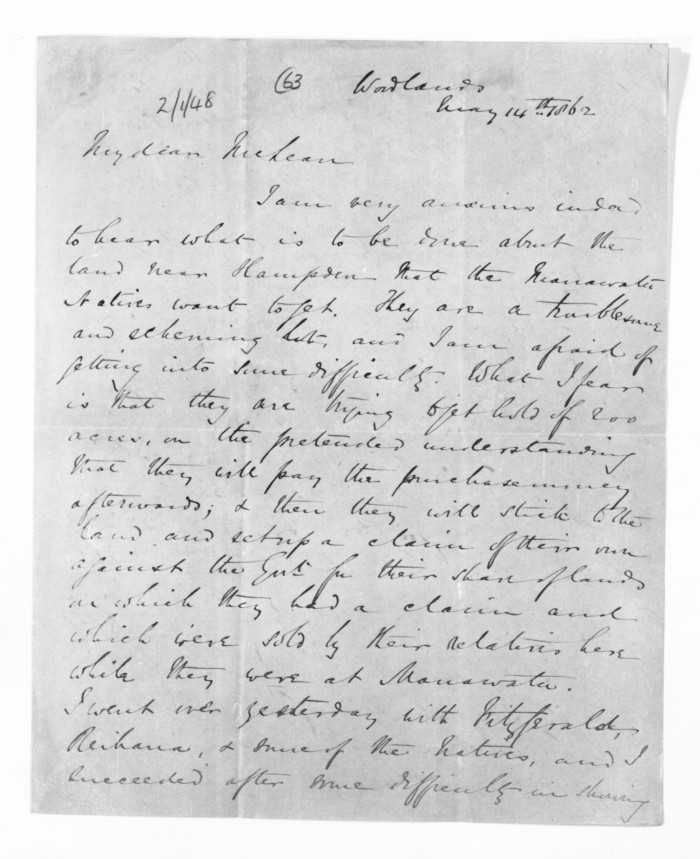 2/1/48
(63
Woodlands
May 14th 1862
My dear McLean
I am very anxious indeed
to hear what is to be done about the
land near Hampden that the Manawatu
Natives want to get. They are a troublesome
and scheming lot, and I am afraid of
getting into some difficulty. What I fear
is that they are trying to get hold of 200
acres, on the pretended understanding
that they will pay the purchase money
afterwards; & then they will stick to the
land and set up a claim of their own
against the Govt. for their share of lands
on which they had a claim and
which were sold by their relatives here
while they were at Manawatu.
I went over yesterday with FitzGerald,
Reihana, & some of the Natives, and I
succeeded after some difficulty in showing